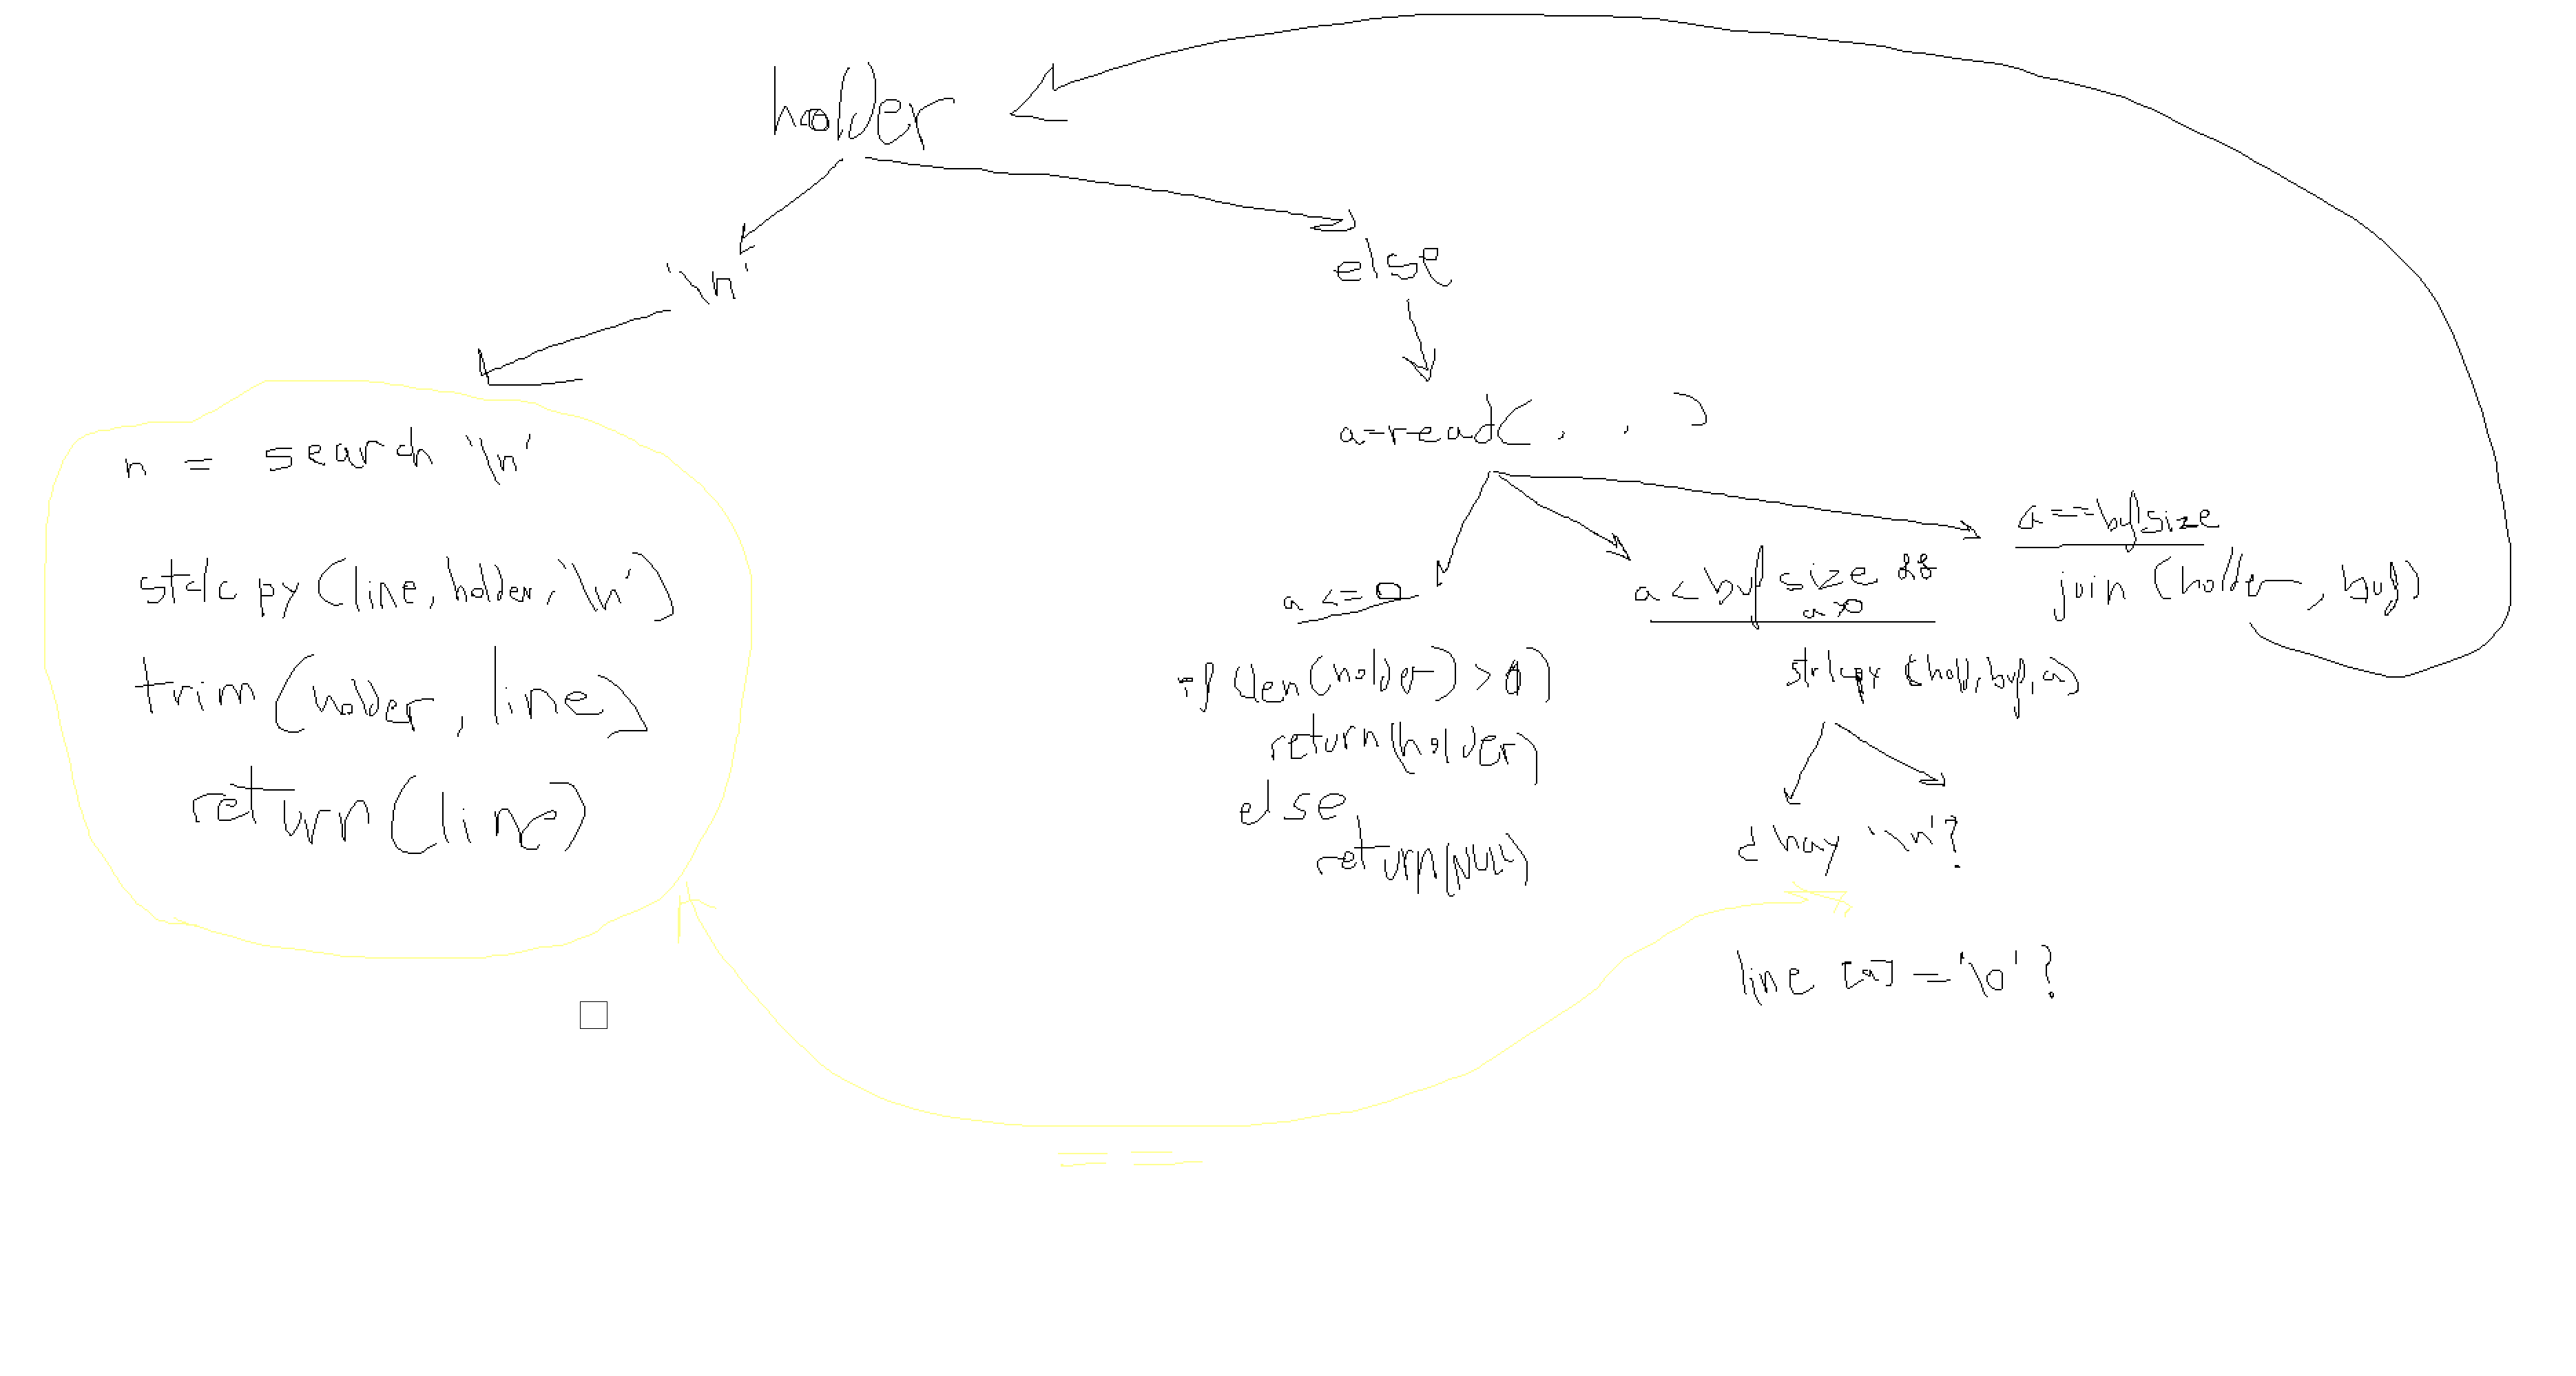 holder
'\n'
else
n = search '\n'
stdcpy(line, holder, '\n')
trim(holder, line)
return(line)
a=read( , , )
a <= 0
if (len(holder) > 0)
return(holder)
else
return(NULL)
a < buf size &&
a>0
strlcpy (hold, buf, a)
¿ hay '\n'?
line [a] = '\0' ?
a==bufsize
join (holder, buf)
==